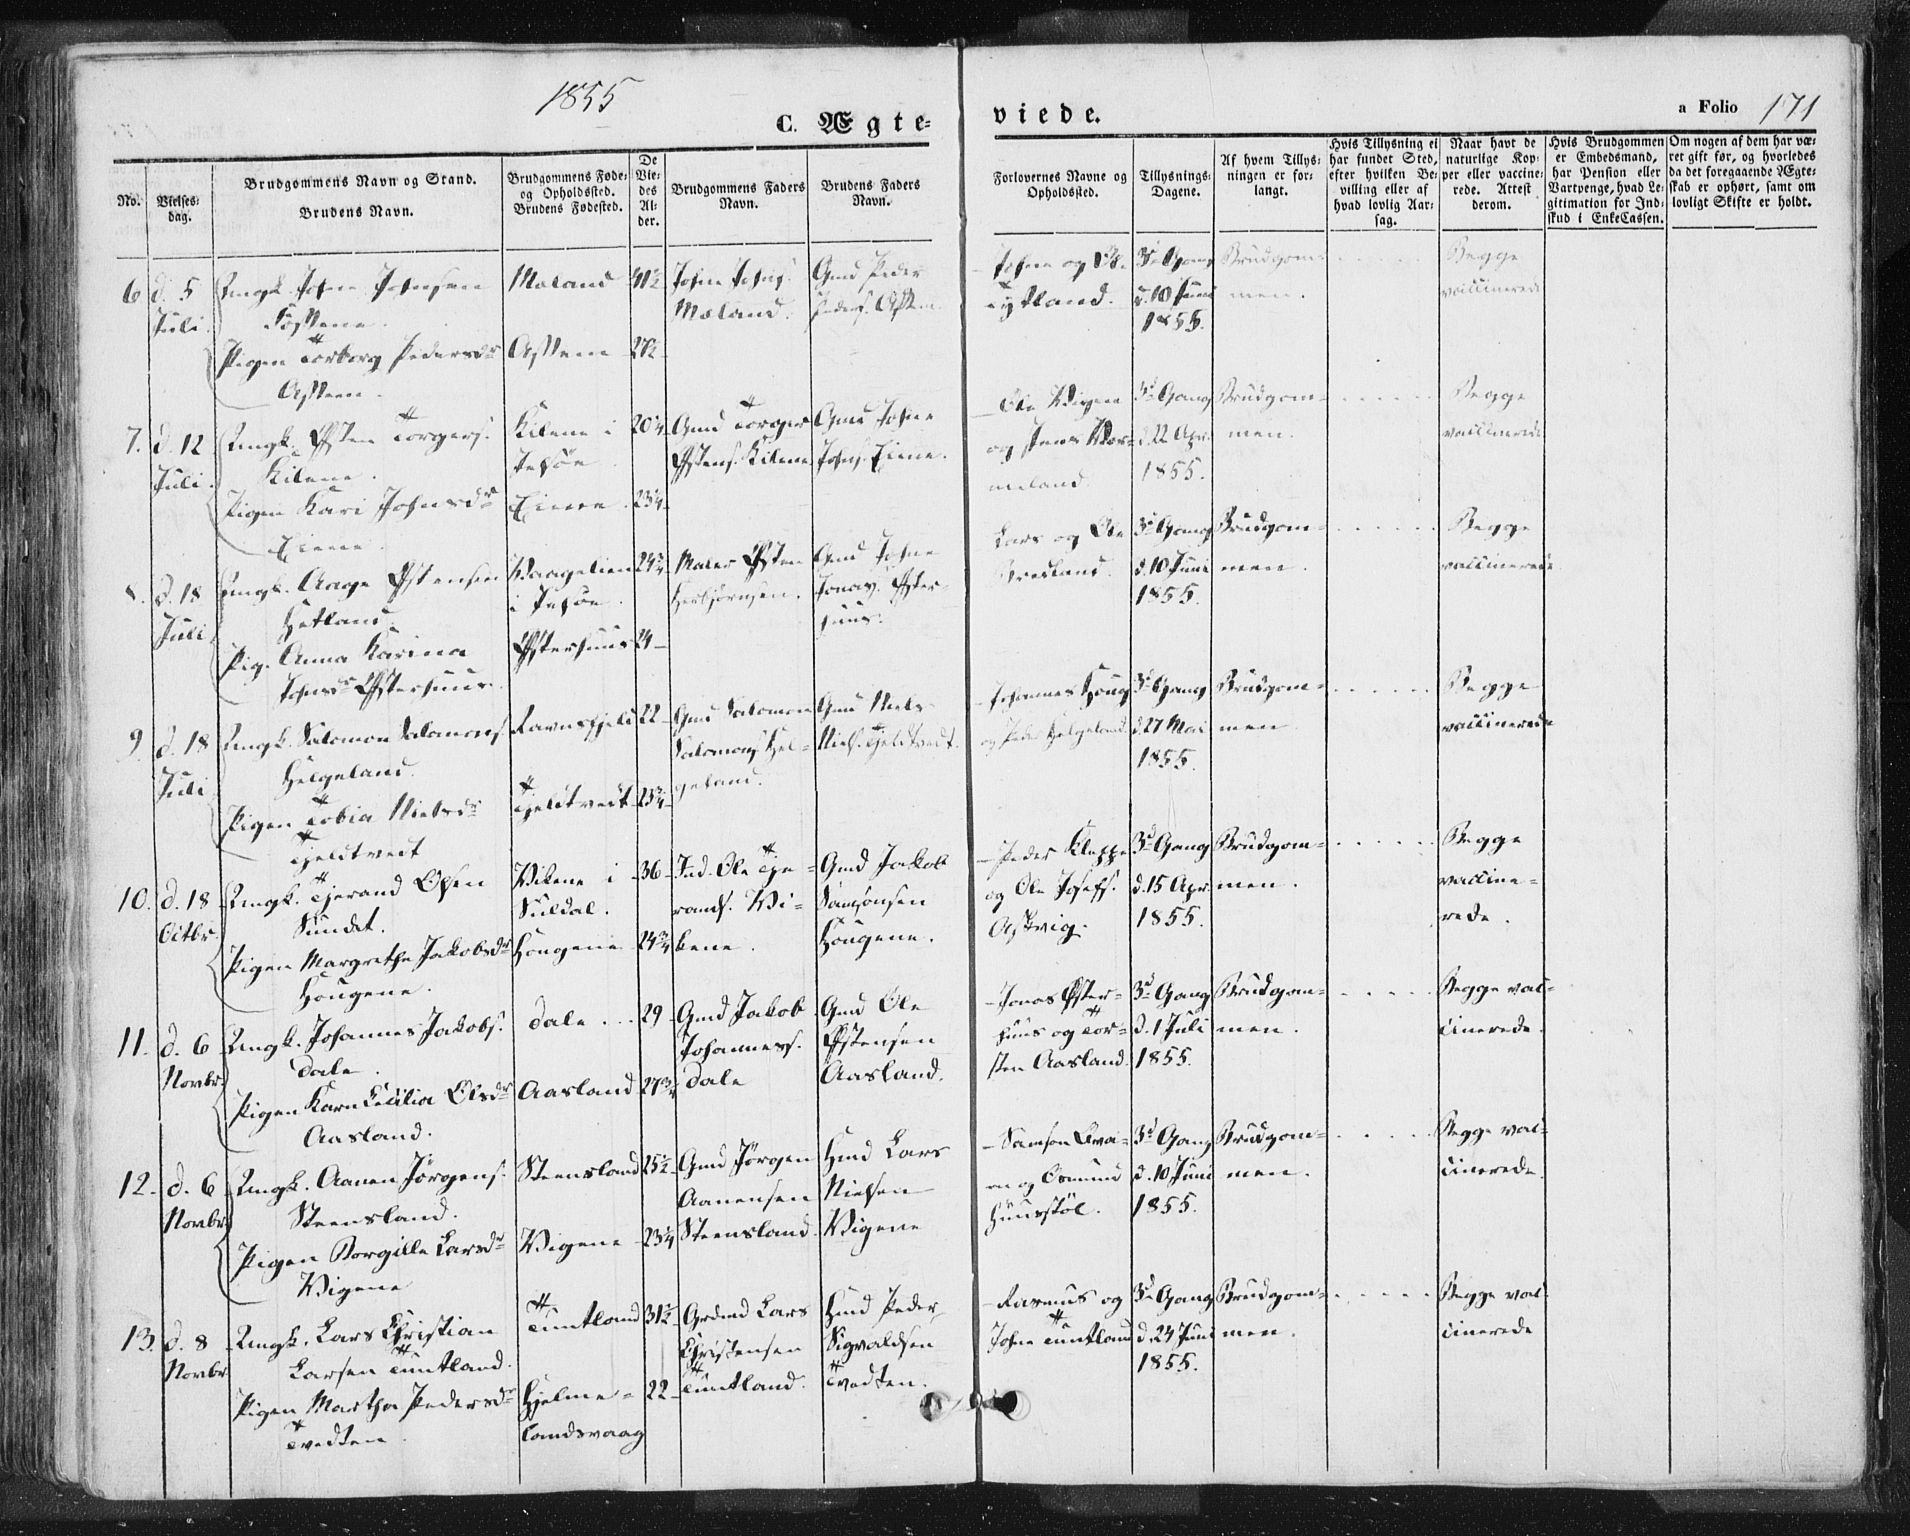 1855
C. Ægte-
viede.
a Folio 171
No.
Vielses-
dag.
Brudgommens Navn og Stand.
Brudens Navn.
Brudgommens Føde-
og Opholdssted.
Brudens Fødested.
De
Vie-
des
Al-
der.
Brudgommens Faders
Navn.
Brudens Faders
Navn.
Forlovernes Navne og
Opholdssted.
Tillysnings-
Dagene.
Af hvem Tillys-
ningen er for-
langt.
Hvis Tillysning ei
har fundet Sted,
efter hvilken Be-
villing eller af
hvad lovlig Aar-
sag.
Naar havt de
naturlige Kop-
per eller vaccine-
rede. Attest
derom.
Hvis Brudgommen
er Embedsmand,
har Pension eller
Vartpenge, hvad Le-
gitimation for Ind-
skud i EnkeCassen.
Om nogen af dem har væ-
ret gift før, og hvorledes
da det foregaaende Ægte-
skab er ophørt, samt om
lovligt Skifte er holdt.
6. d. 5
Juli.
Ungk. John Johnsen
Pigen Torborg Pedersdr
Mæland 41½
27½
John Johns.
Mæland.
Gmd Peder
Peders.
John og
Tytland.
3d Gang
d. 10 Juni
1855.
Brudgom-
men.
Begge
vaccinerede
7. d. 12
Juli.
Ungk. Østen Torgers.
Kilene.
Pigen Kari Johnsdr
Kilene i
Jelsøe.
20¼
23¼
Gmd Torger
Østens. Kilene
Gmd John
Johns.
Ole Wigen
og
3d Gang
d. 22 Apr.
1855.
Brudgom-
men.
Begge
vaccinerede
8. d. 18
Juli
Ungk. Aage Østensen
Hetland.
Pig. Anna Karina
Johnsdr Østerhuus.
Waagelien
i Jelsøe.
Østerhuus
24¾
24
Maler Østen
Herbjørnsen.
Gmd John
Jonas. Øster-
huus.
Lars og Ole
3d Gang
d. 10 Juni
1855.
Brudgom-
men.
Begge
vaccinerede
9. d. 18
Juli
Ungk. Salomon Salomons.
Helgeland.
Pigen Tobia Nielsdr
Tjeldtvedt
Ravnsfjeld
Tjeldtvedt
22
25¾
Gmd Salomon
Salomons. Hel-
geland.
Gmd Niels
Niels. Tjeldtvedt.
Johannes Houg
og Peder Helgeland.
3d Gang
d. 27 Mai
1855.
Brudgom-
men
Begge
vaccinerede
10. d. 18
Octbr.
Ungk. Tjerand Olsen
Sundet.
Pigen Margrethe Jakobsdr
Hougene.
Vikene i
Suldal.
Hougene
36
24¾
Ind. Ole Tje-
rands. Vi-
kene.
Gmd Jakob
Samsonsen
Hougene.
Peder Kleppe
og Ole Josefs.
Astvig.
3d Gang
d. 15 Apr.
1855.
Brudgom-
men.
Begge
vaccine-
rede.
11. d. 6
Novbr.
Ungk. Johannes Jakobs.
Dale.
Pigen Karn Cecilia Olsdr
Aasland.
Dale
Aasland
29
27¾
Gmd Jakob
Johanness.
Dale
Gmd Ole
Østensen
Aasland.
Jonas Øster-
huus og Tor-
sten Aasland.
3d Gang
d. 1 Juli
1855.
Brudgom-
men.
Begge vac-
cinerede.
12. d. 6
Novbr.
Ungk. Aanen Jörgens.
Steensland.
Pigen Borgille Larsdr
Wigene
Steensland
Wigene
25½
23¼
Gmd Jörgen
Aanensen
Steensland.
Hmd Lars
Nielsen
Wigene
Samson Kva-
og Osmund
Huusstøl.
3d Gang
d. 10 Juni
1855.
Brudgom-
men.
Begge vac-
cinerede.
13. d. 8
Novbr
Ungk. Lars Christian
Larsen Tuntland.
Pigen Martha Pedersdr
Tvedten.
Tuntland
Hjelme-
landsvaag
31½
22
Grdmd Lars
Christensen
Tuntland.
Hmd Peder
Sigvaldsen
Tvedten.
Rasmus og
John Tuntland
3d Gang
d. 24 Juni
1855.
Brudgom-
men.
Begge vac-
cinerede